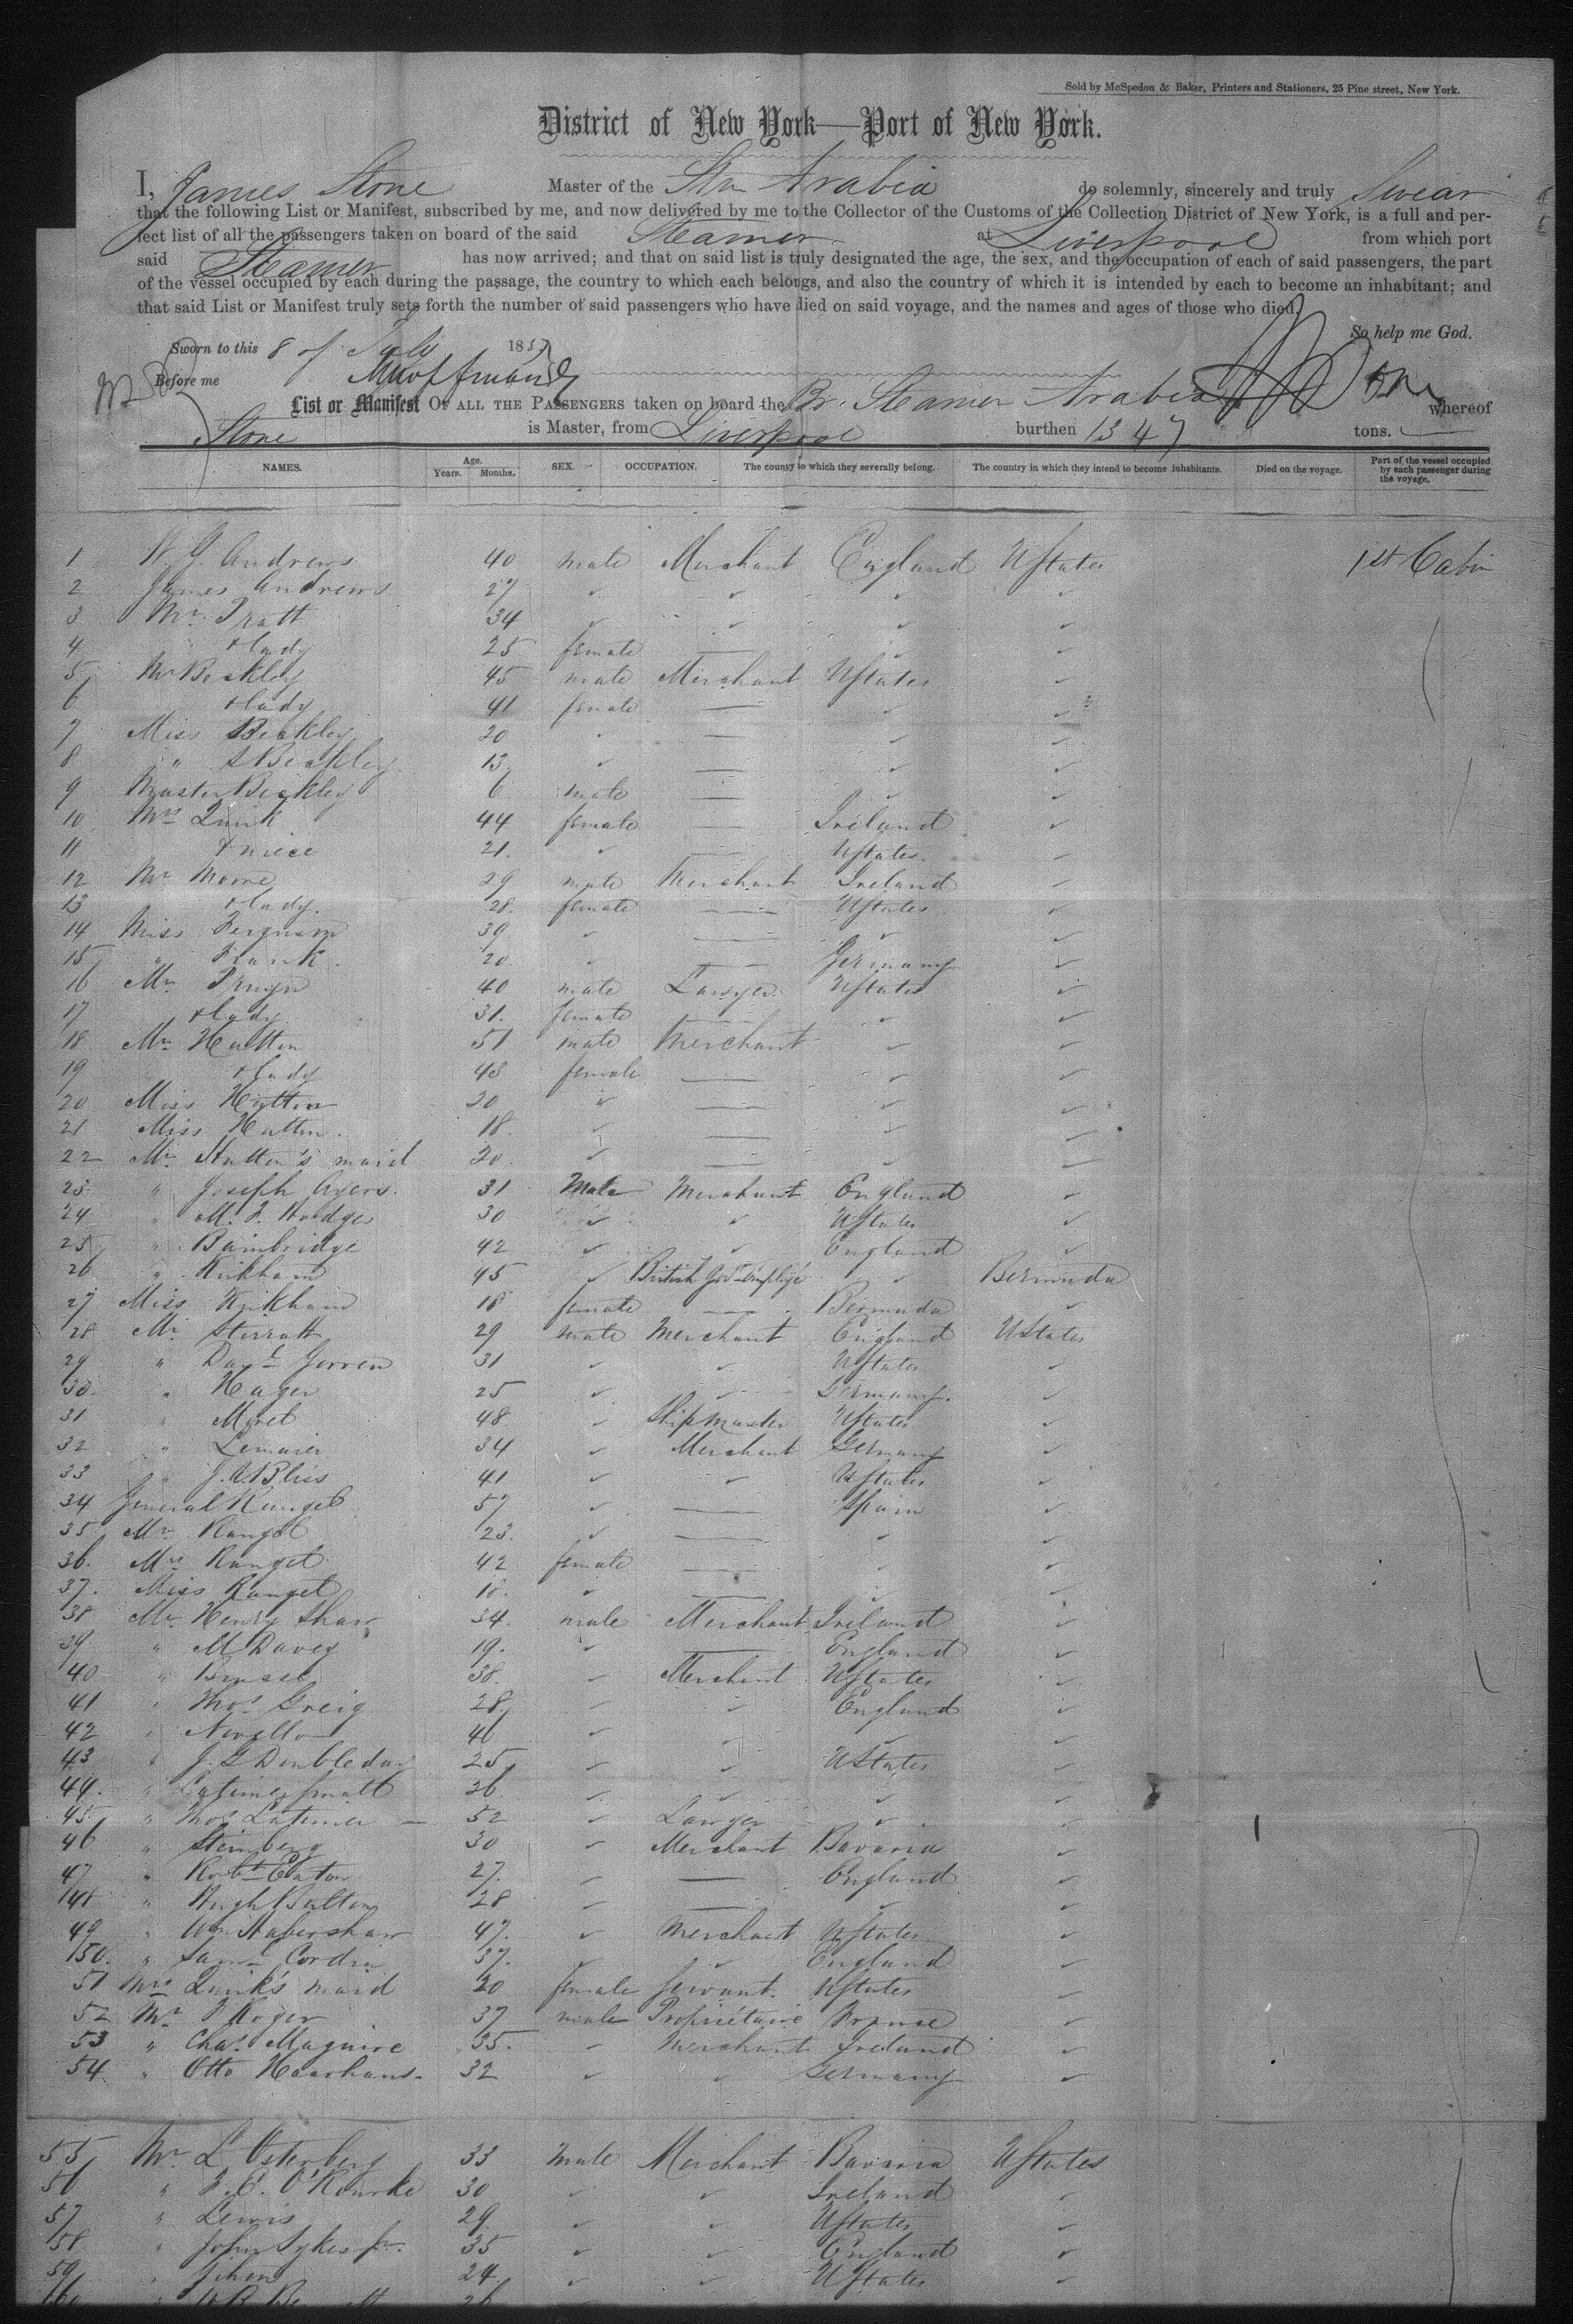 Sold by McSpedon & Baker, Printers and Stationers, 25 Pine street, New York.
District of New York—Port of New York.
I, James Stone Master of the Str Arabia do solemnly, sincerely and truly Swear
that the following List or Manifest, subscribed by me, and now delivered by me to the Collector of the Customs of the Collection District of New York, is a full and per-
fect list of all the passengers taken on board of the said Steamer at Liverpool from which port
said Steamer has now arrived; and that on said list is truly designated the age, the sex, and the occupation of each of said passengers, the part
of the vessel occupied by each during the passage, the country to which each belongs, and also the country of which it is intended by each to become an inhabitant; and
that said List or Manifest truly sets forth the number of said passengers who have died on said voyage, and the names and ages of those who died.
So help me God.
Sworn to this 8 of July 185
Before me
List or Manifest OF ALL THE PASSENGERS taken on board the Br. Steamer Arabia whereof
Stone is Master, from Liverpool burthen 1347 tons.
NAMES. Age. Years. Months. SEX. OCCUPATION. The county to which they severally belong. The country in which they intend to become inhabitants. Died on the voyage. Part of the vessel occupied by each passenger during the voyage.
1 W. J. Andrews 40 male Merchant England UStates 1st Cabin
2 James Andrews 27 ✓ ✓ ✓ ✓
3 Mr Pratt 34 ✓ ✓ ✓ ✓
4 + lady 25 female — ✓ ✓
5 Mr Beckley 45 male Merchant UStates ✓
6 + lady 41 female — ✓ ✓
7 Miss Beckley 20 ✓ — ✓ ✓
8 " S Beckley 13 ✓ — ✓ ✓
9 Master Beckley 6 male — ✓ ✓
10 Mrs Quirk 44 female — Ireland ✓
11 + niece 21. ✓ — UStates ✓
12 Mr Moore 29 male Merchant Ireland ✓
13 + lady. 28. female — UStates ✓
14 Miss Ferguson 39 ✓ — ✓ ✓
15 " Frank 20 ✓ — Germany ✓
16 Mr Pruyn 40 male Lawyer UStates ✓
17 + lady 31. female — ✓ ✓
18 Mr Hutton 51 male Merchant ✓ ✓
19 + lady 43 female — ✓ ✓
20 Miss Hutton 20 ✓ — ✓ ✓
21 Miss Hutton 18. ✓ — ✓ ✓
22 Mr Hutton's maid 20. ✓ — ✓ ✓
23. " Joseph Ayers. 31 Male Merchant England ✓
24 " M. F. Hodges 30 ✓ ✓ UStates ✓
25 " Bambridge 42 ✓ ✓ England ✓
26 " Kirkham 45 ✓ British Govt employe ✓ Bermuda
27 Miss Kirkham 18 female — Bermuda ✓
28 Mr Stirratt 29 male Merchant England UStates
29 " Davd 31 ✓ ✓ UStates ✓
30. " Hager 25 ✓ ✓ Germany. ✓
31 " 48. ✓ Shipmaster UStates ✓
32 " 34 ✓ Merchant Germany ✓
33 " Bliss 41 ✓ ✓ UStates ✓
34 General Rangel 57 ✓ — Spain ✓
35 Mr Rangel 23. ✓ — ✓ ✓
36. Mrs Rangel 42 female — ✓ ✓
37. Miss Rangel 18. ✓ — ✓ ✓
38 Mr Henry Shaw 34. male Merchant Ireland ✓
39. " M Davey 19. ✓ — England ✓
40 " 38. ✓ Merchant UStates ✓
41 " Thos Greig 28. ✓ ✓ England ✓
42 " Novello 46 ✓ ✓ ✓ ✓
43 " J. G Doubleday 25 ✓ ✓ UStates ✓
44. " Latimer Small 26 ✓ ✓ ✓ ✓
45 " Thos Latimer — 52 ✓ Lawyer ✓ ✓
46 " Steinberg 30 ✓ Merchant Bavaria ✓
47 " Robt Eaton 27. ✓ — England ✓
148 " Hugh Bulten 28 ✓ — ✓ ✓
49 " Wm Habershaw 47. ✓ Merchant UStates ✓
150. " Saml Cordin 37. ✓ ✓ England ✓
51 Mrs Quirk's maid 20 female Servant. UStates ✓
52 Mr P Roger 37 male Propriétaire France ✓
53 " Chas. Maguire 35. ✓ Merchant Ireland ✓
54. " Otto Haarhaus. 32 ✓ ✓ Germany ✓
55 Mr L Osterberg 33 male Merchant Bavaria UStates
56 " F. C. O'Rourke 30 ✓ ✓ Ireland ✓
57 " Lewis 29. ✓ ✓ UStates ✓
58 " John Sykes Jr. 35 ✓ ✓ England ✓
59 24. ✓ ✓ UStates ✓
26